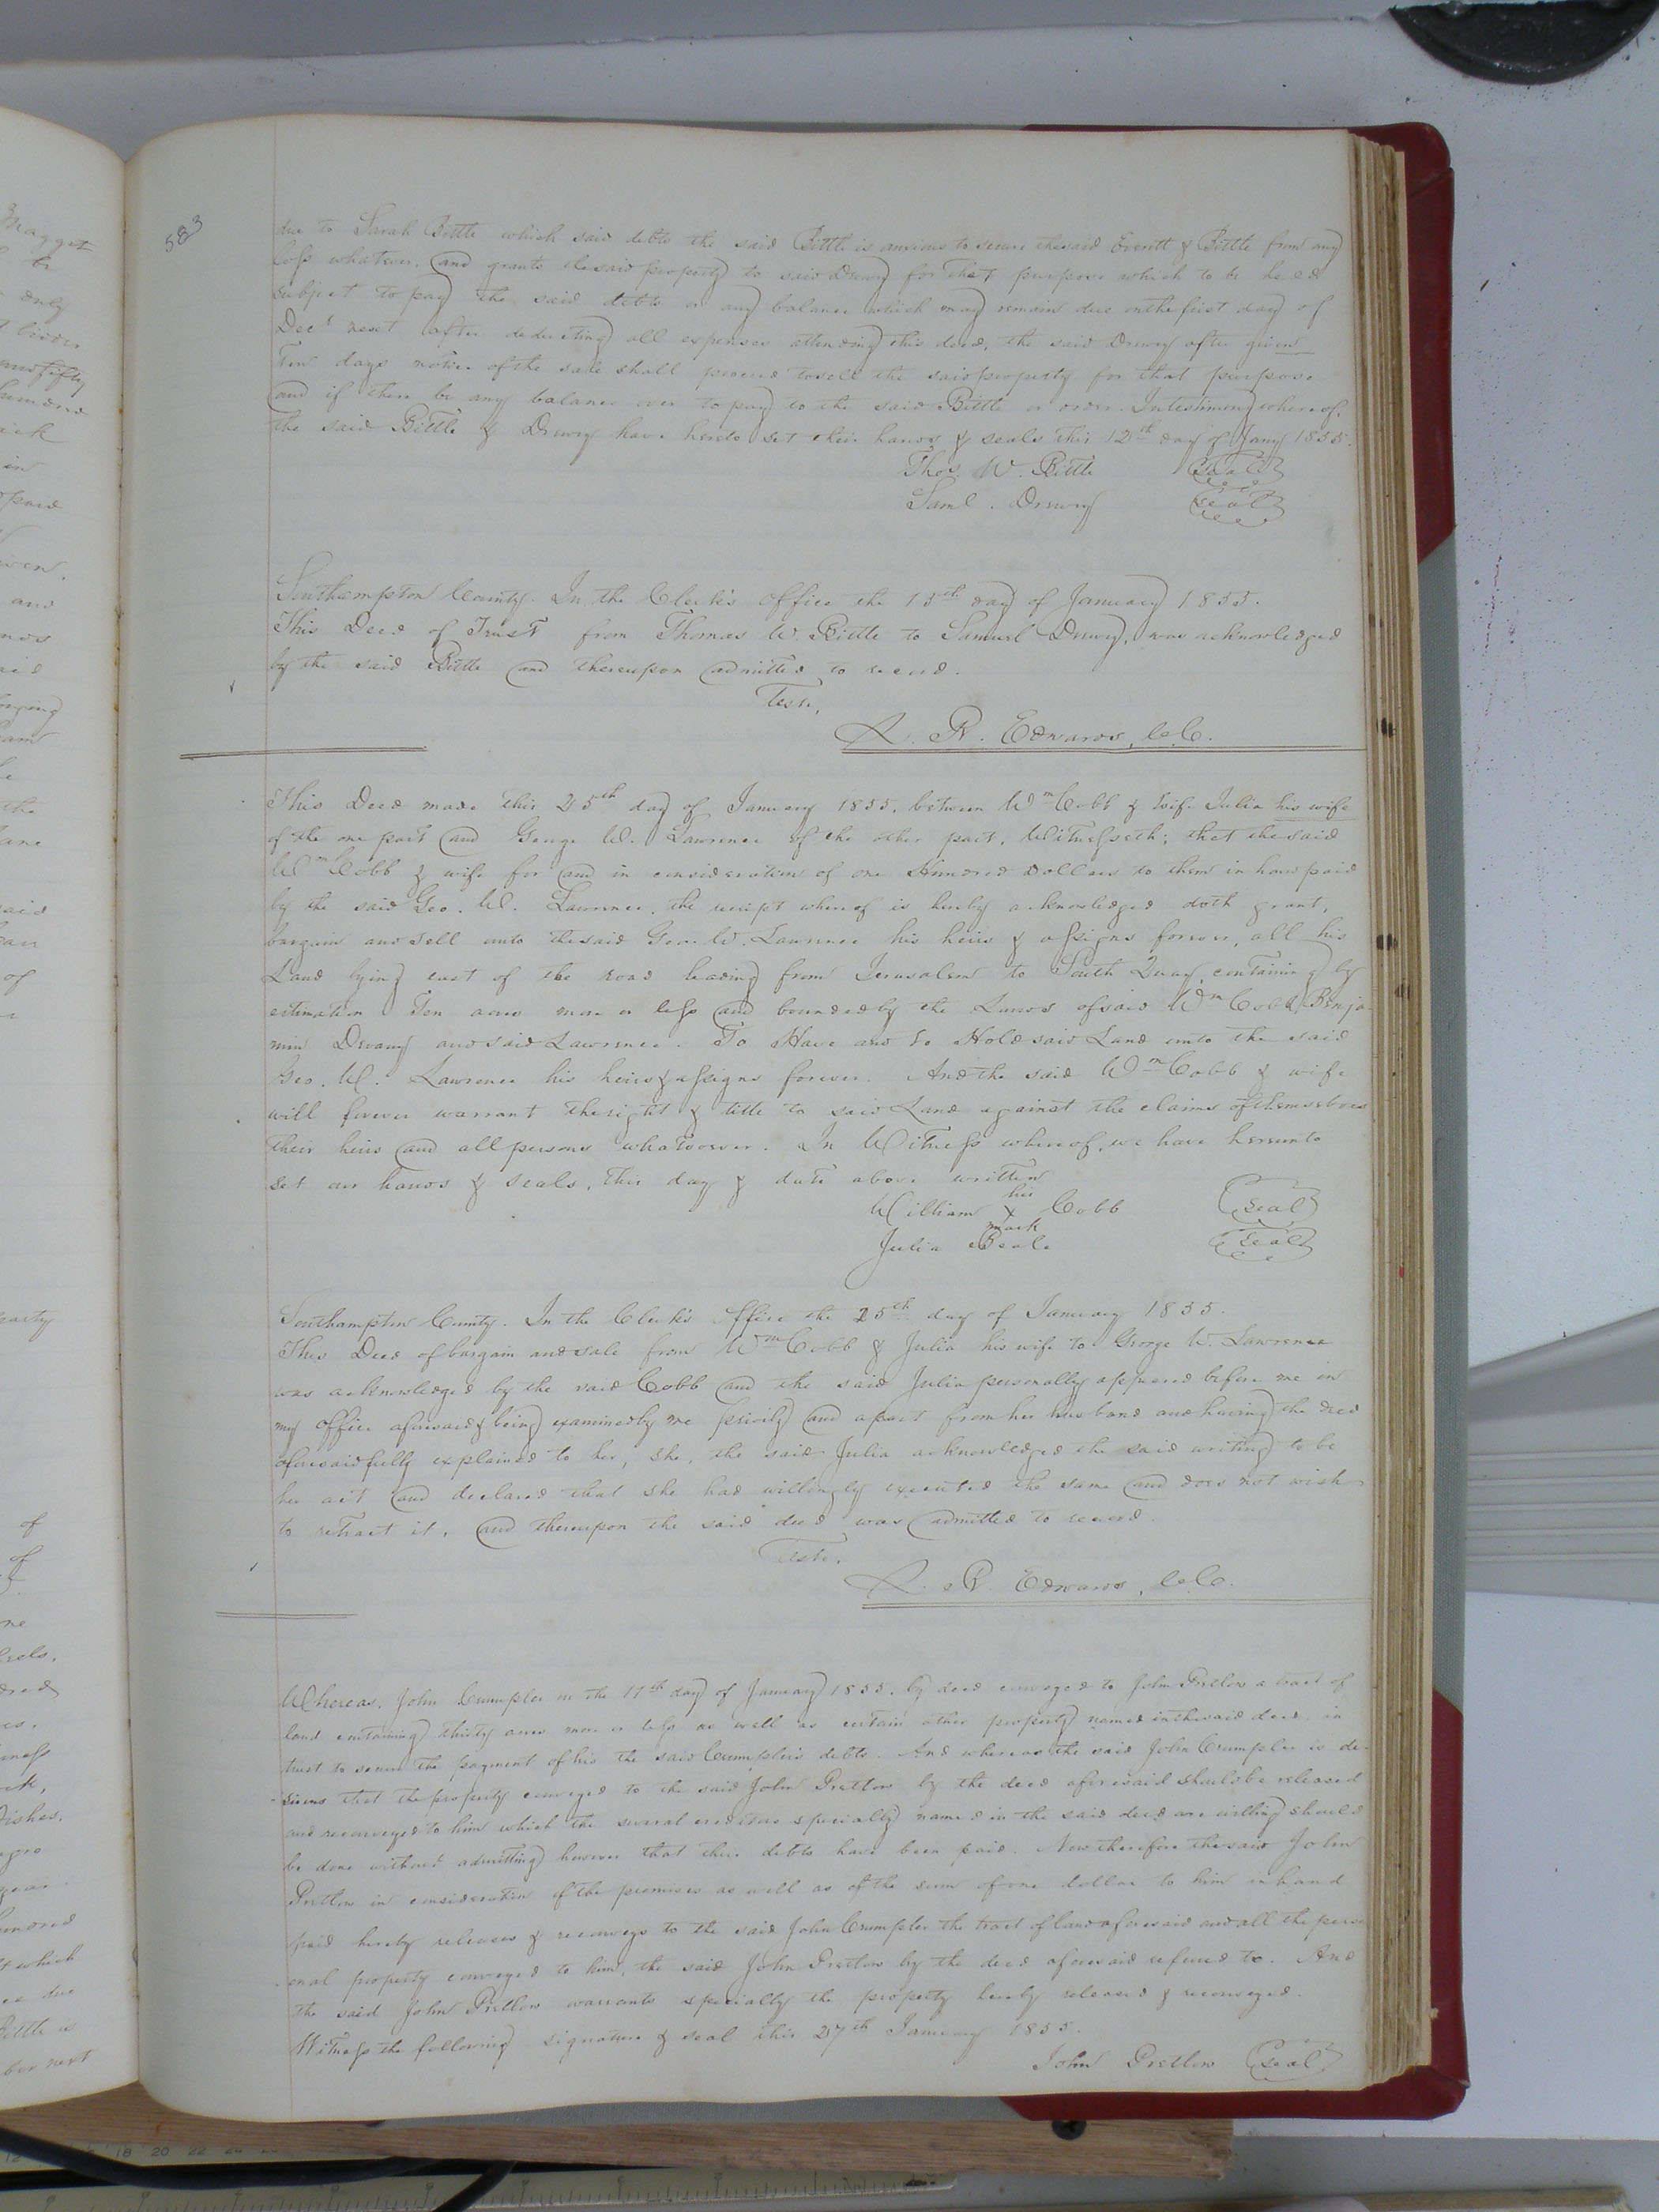 583
due to Sarah Bittle which said debts the said Bittle is anxious to secure the said Everett & Bittle from any
loss whatever. and grants the said property to said Drewry for that purpose which to be held
subject to pay the said debts or any balance which may remain due on the first day of
Decr next after deducting all expenses attending this deed, the said Drewry after given
Ten days notice of the sale shall proceed to sell the said property for that purpose
and if there be any balance over to pay to the said Bittle or order. In testimony whereof,
the said Bittle & Drewry have hereto set their hands & seals this 12th day of Jany 1855.
Thos. W. Bittle Seal
Saml. Drewry Seal
Southampton County. In the Clerk's Office the 15th day of January 1855.
This Deed of Trust from Thomas W. Bittle to Samuel Drewry, was acknowledged
by the said Bittle and thereupon admitted to record.
Teste,
L. R. Edwards, C.C.
This Deed made this 25th day of January 1855, between Wm Cobb & wife Julia his wife
of the one part and George W. Lawrence of the other part, Witnesseth; that the said
Wm Cobb & wife for and in consideration of one Hundred Dollars to them in hand paid
by the said Geo. W. Lawrence, the receipt whereof is hereby acknowledged doth grant,
bargain and sell unto the said Geo. W. Lawrence his heirs & assigns forever, all his
Land lying east of the road leading from Jerusalem to South Quay, containing by
estimation Ten acres more or less and bounded by the Lands of said Wm Cobb, Benja-
min Drewry and said Lawrence. To Have and to Hold said Land unto the said
Geo. W. Lawrence his heirs & assigns forever. And the said Wm Cobb & wife
will forever warrant the right & title to said Land against the claims of themselves
their heirs and all persons whatsoever. In Witness whereof, we have hereunto
set our hands & seals, this day & date above written
his
William X Cobb Seal
mark
Julia Beale Seal
Southampton County. In the Clerk's Office the 25th day of January 1855.
This Deed of bargain and sale from Wm Cobb & Julia his wife to George W. Lawrence
was acknowledged by the said Cobb and the said Julia personally appeared before me in
my office aforesaid & being examined by me privily and apart from her husband and having the deed
aforesaid fully explained to her, she, the said Julia acknowledged the said writing to be
her act and declared that she had willingly executed the same and does not wish
to retract it, and thereupon the said deed was admitted to record.
Teste,
L. R. Edwards, C.C.
Whereas, John Crumpler on the 11th day of January 1855, by deed conveyed to John Pretlow a tract of
land containing thirty acres more or less as well as certain other property named in the said deed in
trust to secure the payment of his the said Crumpler's debts. And whereas the said John Crumpler is de-
sirous that the property conveyed to the said John Pretlow by the deed aforesaid should be released
and reconveyed to him which the several creditors specially named in the said deed are willing should
be done without admitting however that their debts have been paid. Now therefore the said John
Pretlow in consideration of the premises as well as of the sum of one dollar to him in hand
paid hereby releases & reconveys to the said John Crumpler the tract of land aforesaid and all the pers-
onal property conveyed to him, the said John Pretlow by the deed aforesaid refered to. And
the said John Pretlow warrants specially the property hereby released & reconveyed.
Witness the following signature & seal this 27th January 1855.
John Pretlow Seal